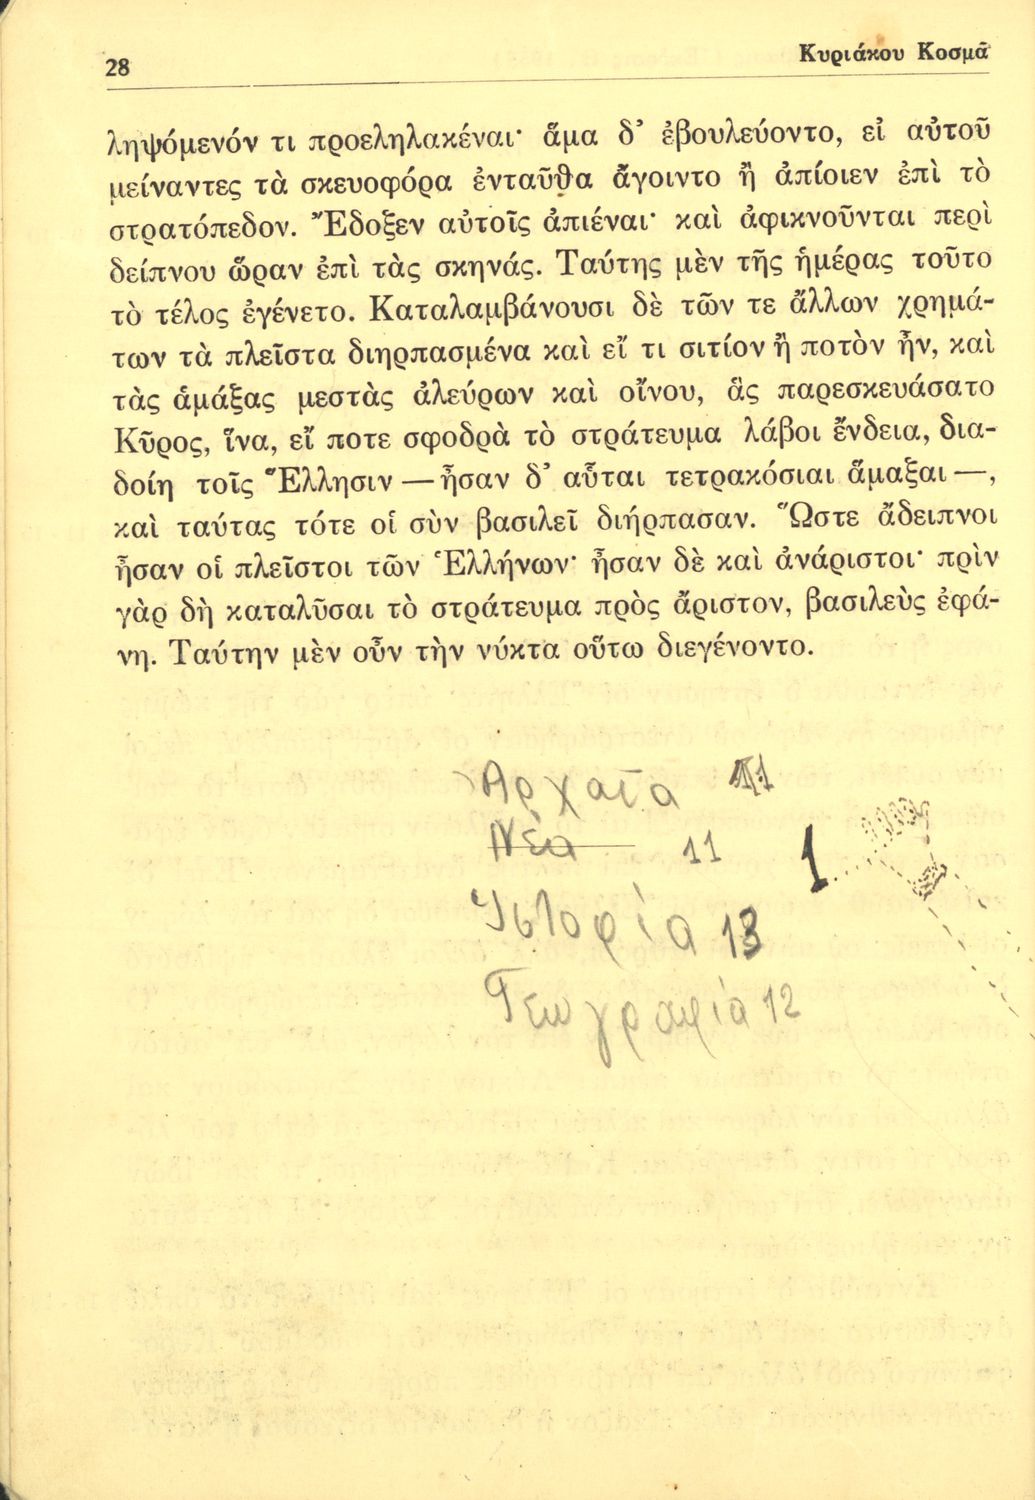 28
Κυριάκου Κοσμᾶ
ληψόμενόν τι προεληλακέναι· ἅμα δ’ ἐβουλεύοντο, εἰ αὐτοῦ
μείναντες τὰ σκευοφόρα ἐνταῦθα ἄγοιντο ἢ ἀπίοιεν ἐπὶ τὸ
στρατόπεδον. Ἔδοξεν αὐτοῖς ἀπιέναι· καὶ ἀφικνοῦνται περὶ
δείπνου ὥραν ἐπὶ τὰς σκηνάς. Ταύτης μὲν τῆς ἡμέρας τοῦτο
τὸ τέλος ἐγένετο. Καταλαμβάνουσι δὲ τῶν τε ἄλλων χρημά-
των τὰ πλεῖστα διηρπασμένα καὶ εἴ τι σιτίον ἢ ποτὸν ἦν, καὶ
τὰς ἁμάξας μεστὰς ἀλεύρων καὶ οἴνου, ἃς παρεσκευάσατο
Κῦρος, ἵνα, εἴ ποτε σφοδρὰ τὸ στράτευμα λάβοι ἔνδεια, δια-
δοίη τοῖς Ἕλλησιν — ἦσαν δ’ αὗται τετρακόσιαι ἅμαξαι —,
καὶ ταύτας τότε οἱ σὺν βασιλεῖ διήρπασαν. Ὥστε ἄδειπνοι
ἦσαν οἱ πλεῖστοι τῶν Ἑλλήνων· ἦσαν δὲ καὶ ἀνάριστοι· πρὶν
γὰρ δὴ καταλῦσαι τὸ στράτευμα πρὸς ἄριστον, βασιλεὺς ἐφά-
νη. Ταύτην μὲν οὖν τὴν νύκτα οὕτω διεγένοντο.
Ἀρχαῖα 11
Νέα 11
1
Ἱστορία 13
Γεωγραφία 12